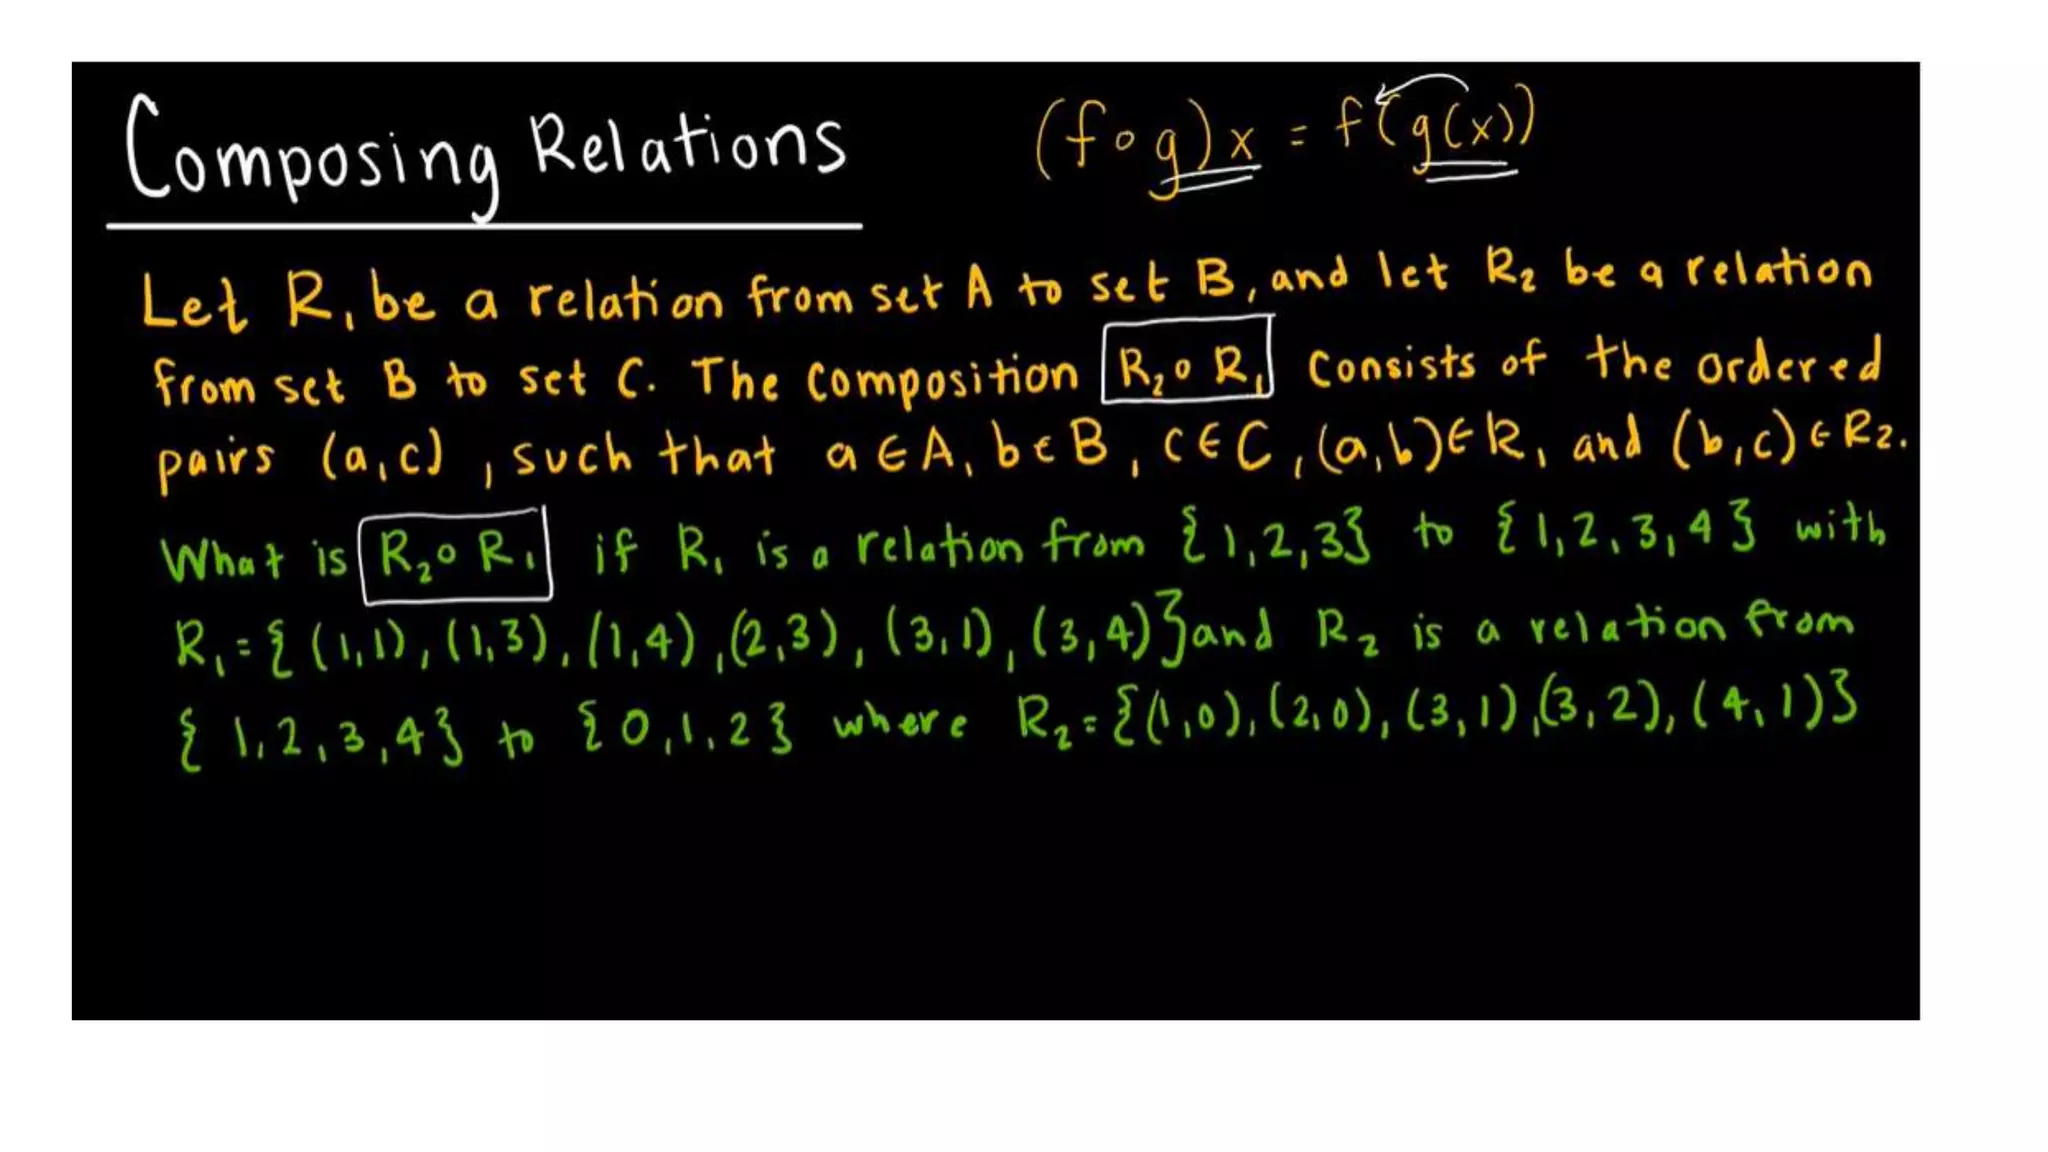 Composing Relations (f∘g)x = f(g(x))
Let R₁ be a relation from set A to set B, and let R₂ be a relation
from set B to set C. The composition R₂∘R₁ consists of the ordered
pairs (a,c), such that a∈A, b∈B, c∈C, (a,b)∈R₁ and (b,c)∈R₂.
What is R₂∘R₁ if R₁ is a relation from {1,2,3} to {1,2,3,4} with
R₁={(1,1),(1,3),(1,4),(2,3),(3,1),(3,4)} and R₂ is a relation from
{1,2,3,4} to {0,1,2} where R₂={(1,0),(2,0),(3,1),(3,2),(4,1)}